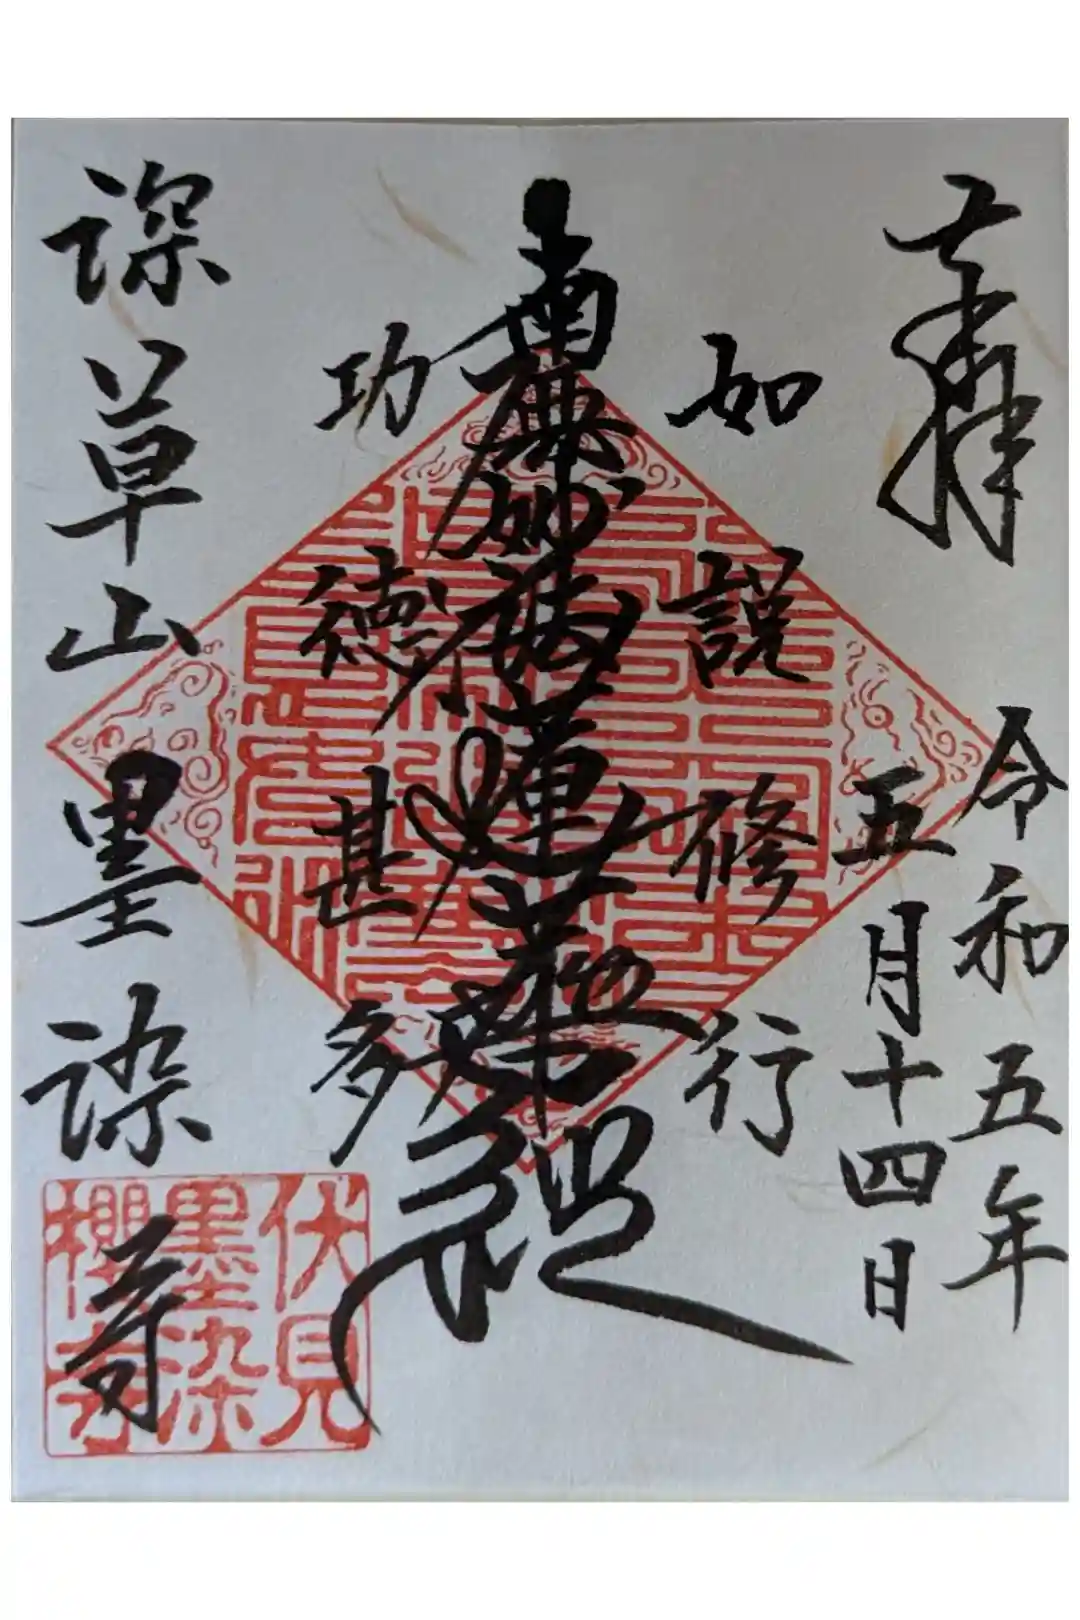 奉拝
令和五年
五月十四日
如説修行
南無妙法蓮華経
功徳甚多
深草山墨染寺
伏見
墨染
櫻寺